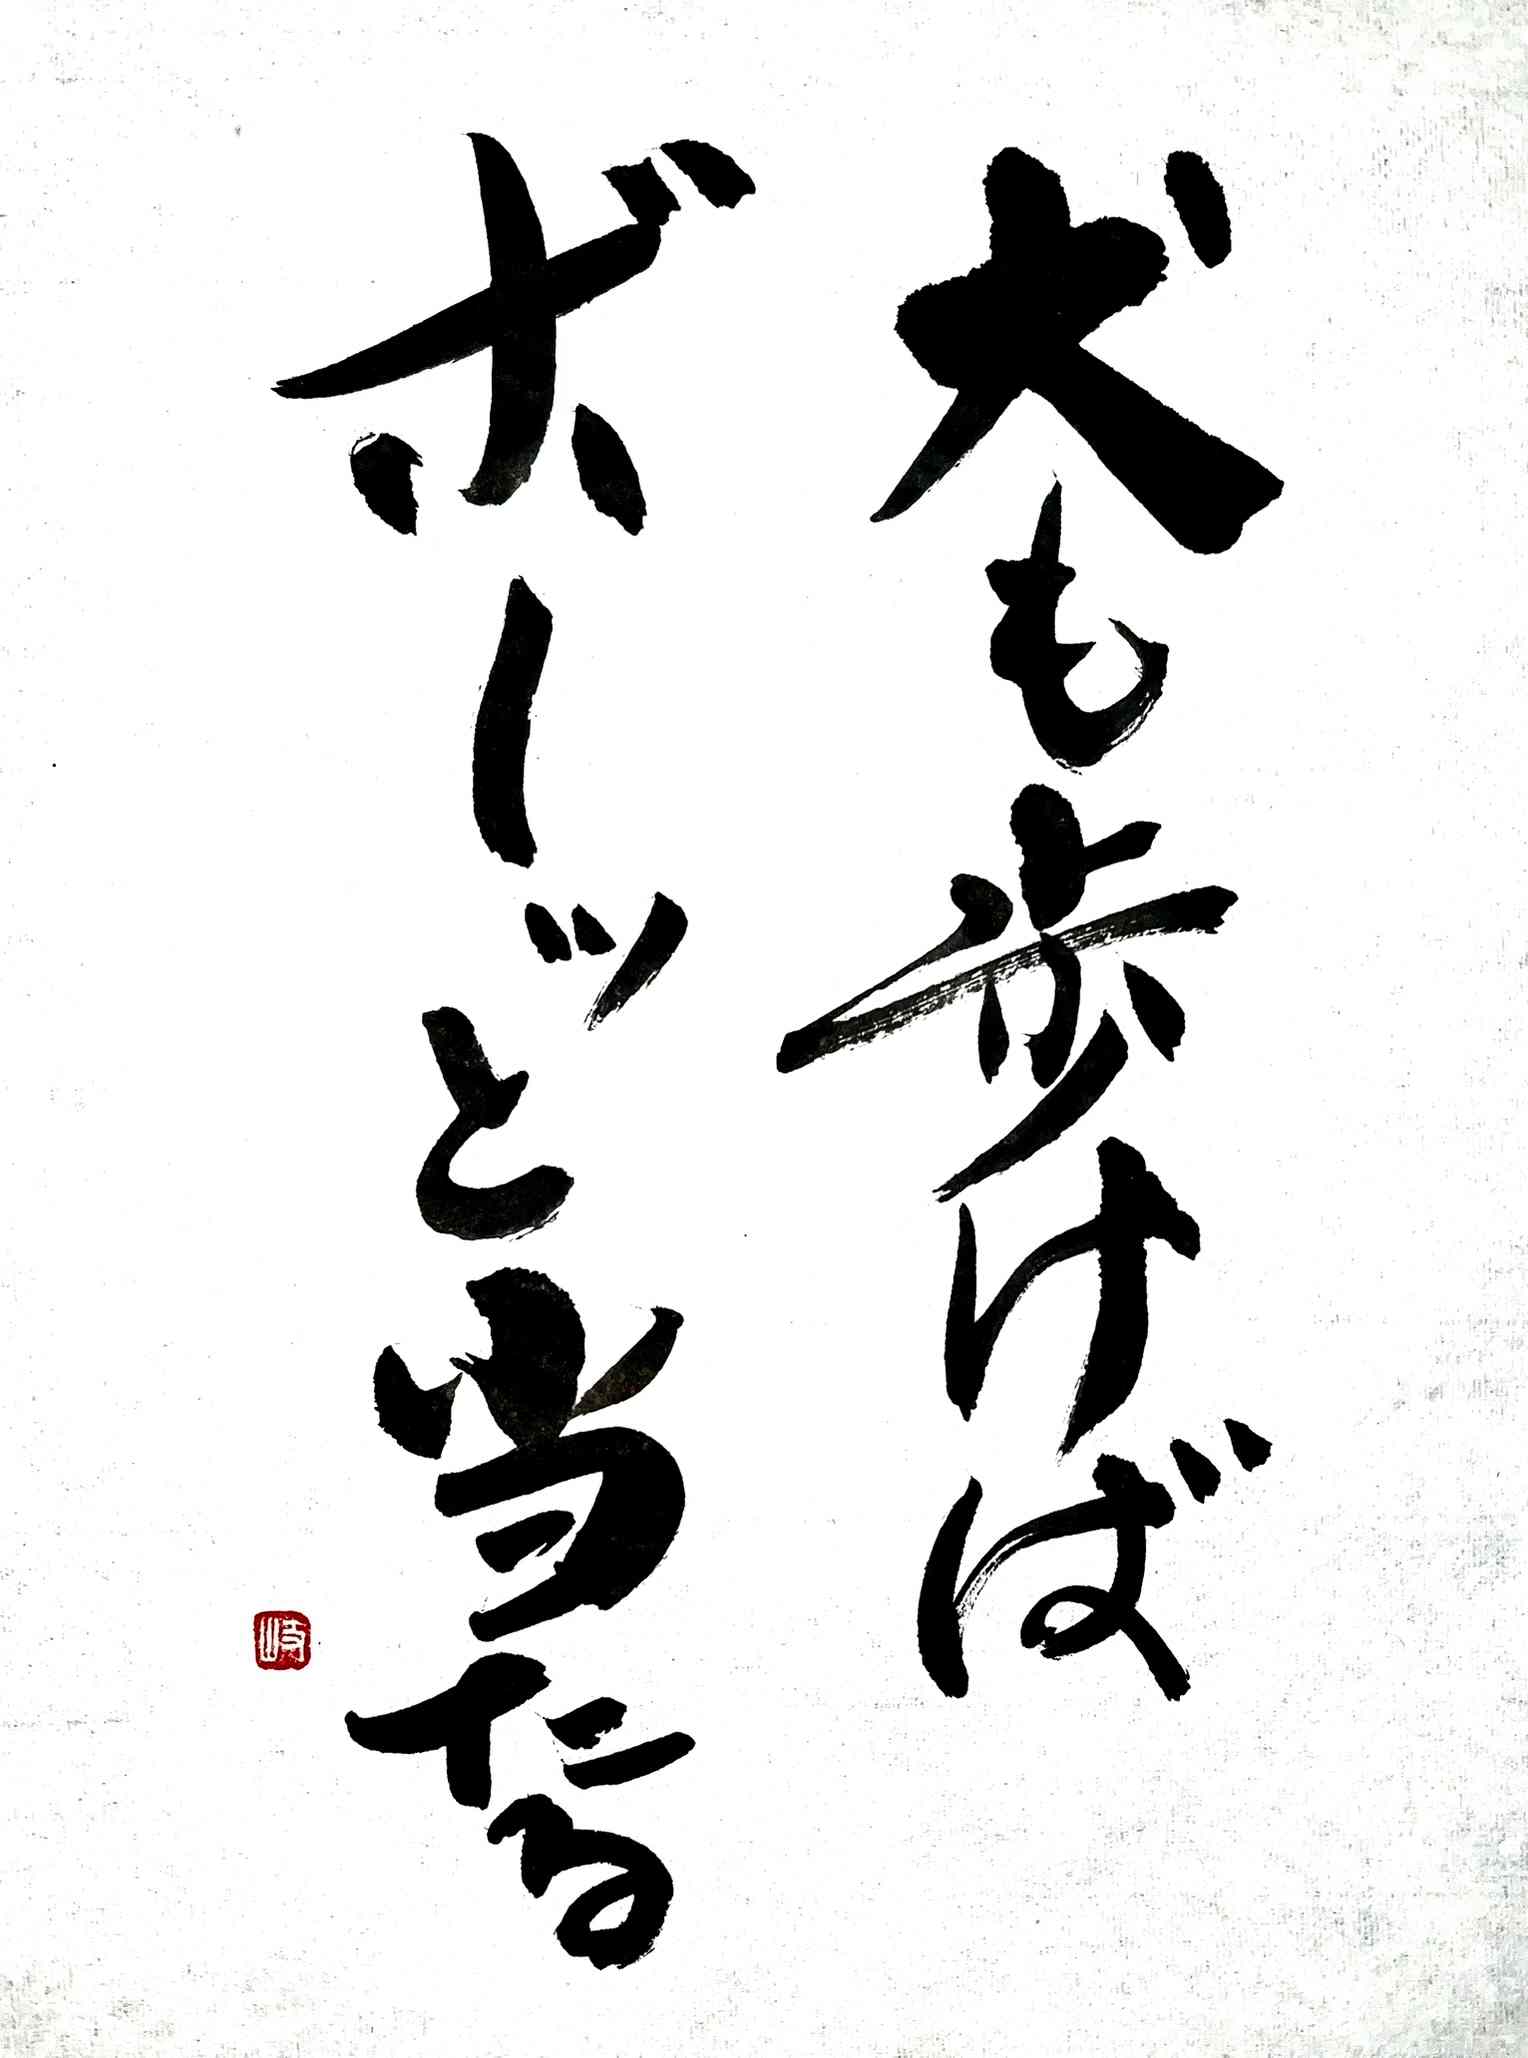 犬も歩けば
ボーッと当たる
岐